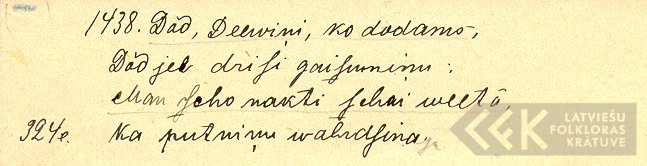 1438. Dod, Deewiņi, ko dodams,
Dod jel drisi gaisumiņu:
Man scho nakti schai weetā,
324e. Kā putniņu wahrdsina
LATVIEŠU
FOLKLORAS
KRĀTUVE